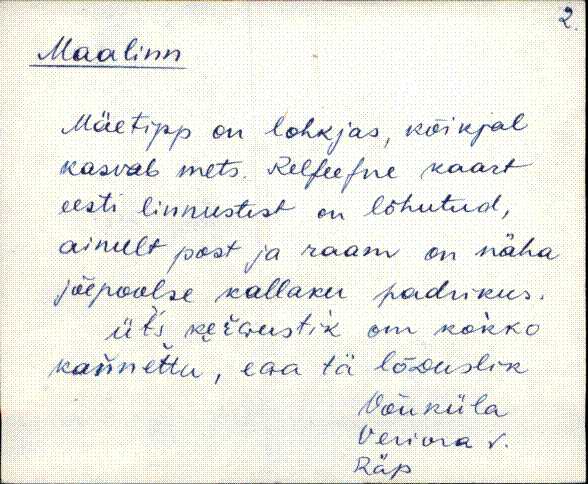 2.
Maalinn
Mäetipp on lohkjas, kõikjal
kasvab mets. Relfeefne kaart
eesti linnustest on lõhutud,
ainult post ja raam on näha
jõepoolse kallaku padrikus.
üt's om kokko
kannettu, ega tä lõduslik
Võuküla
Veriora v.
Räp